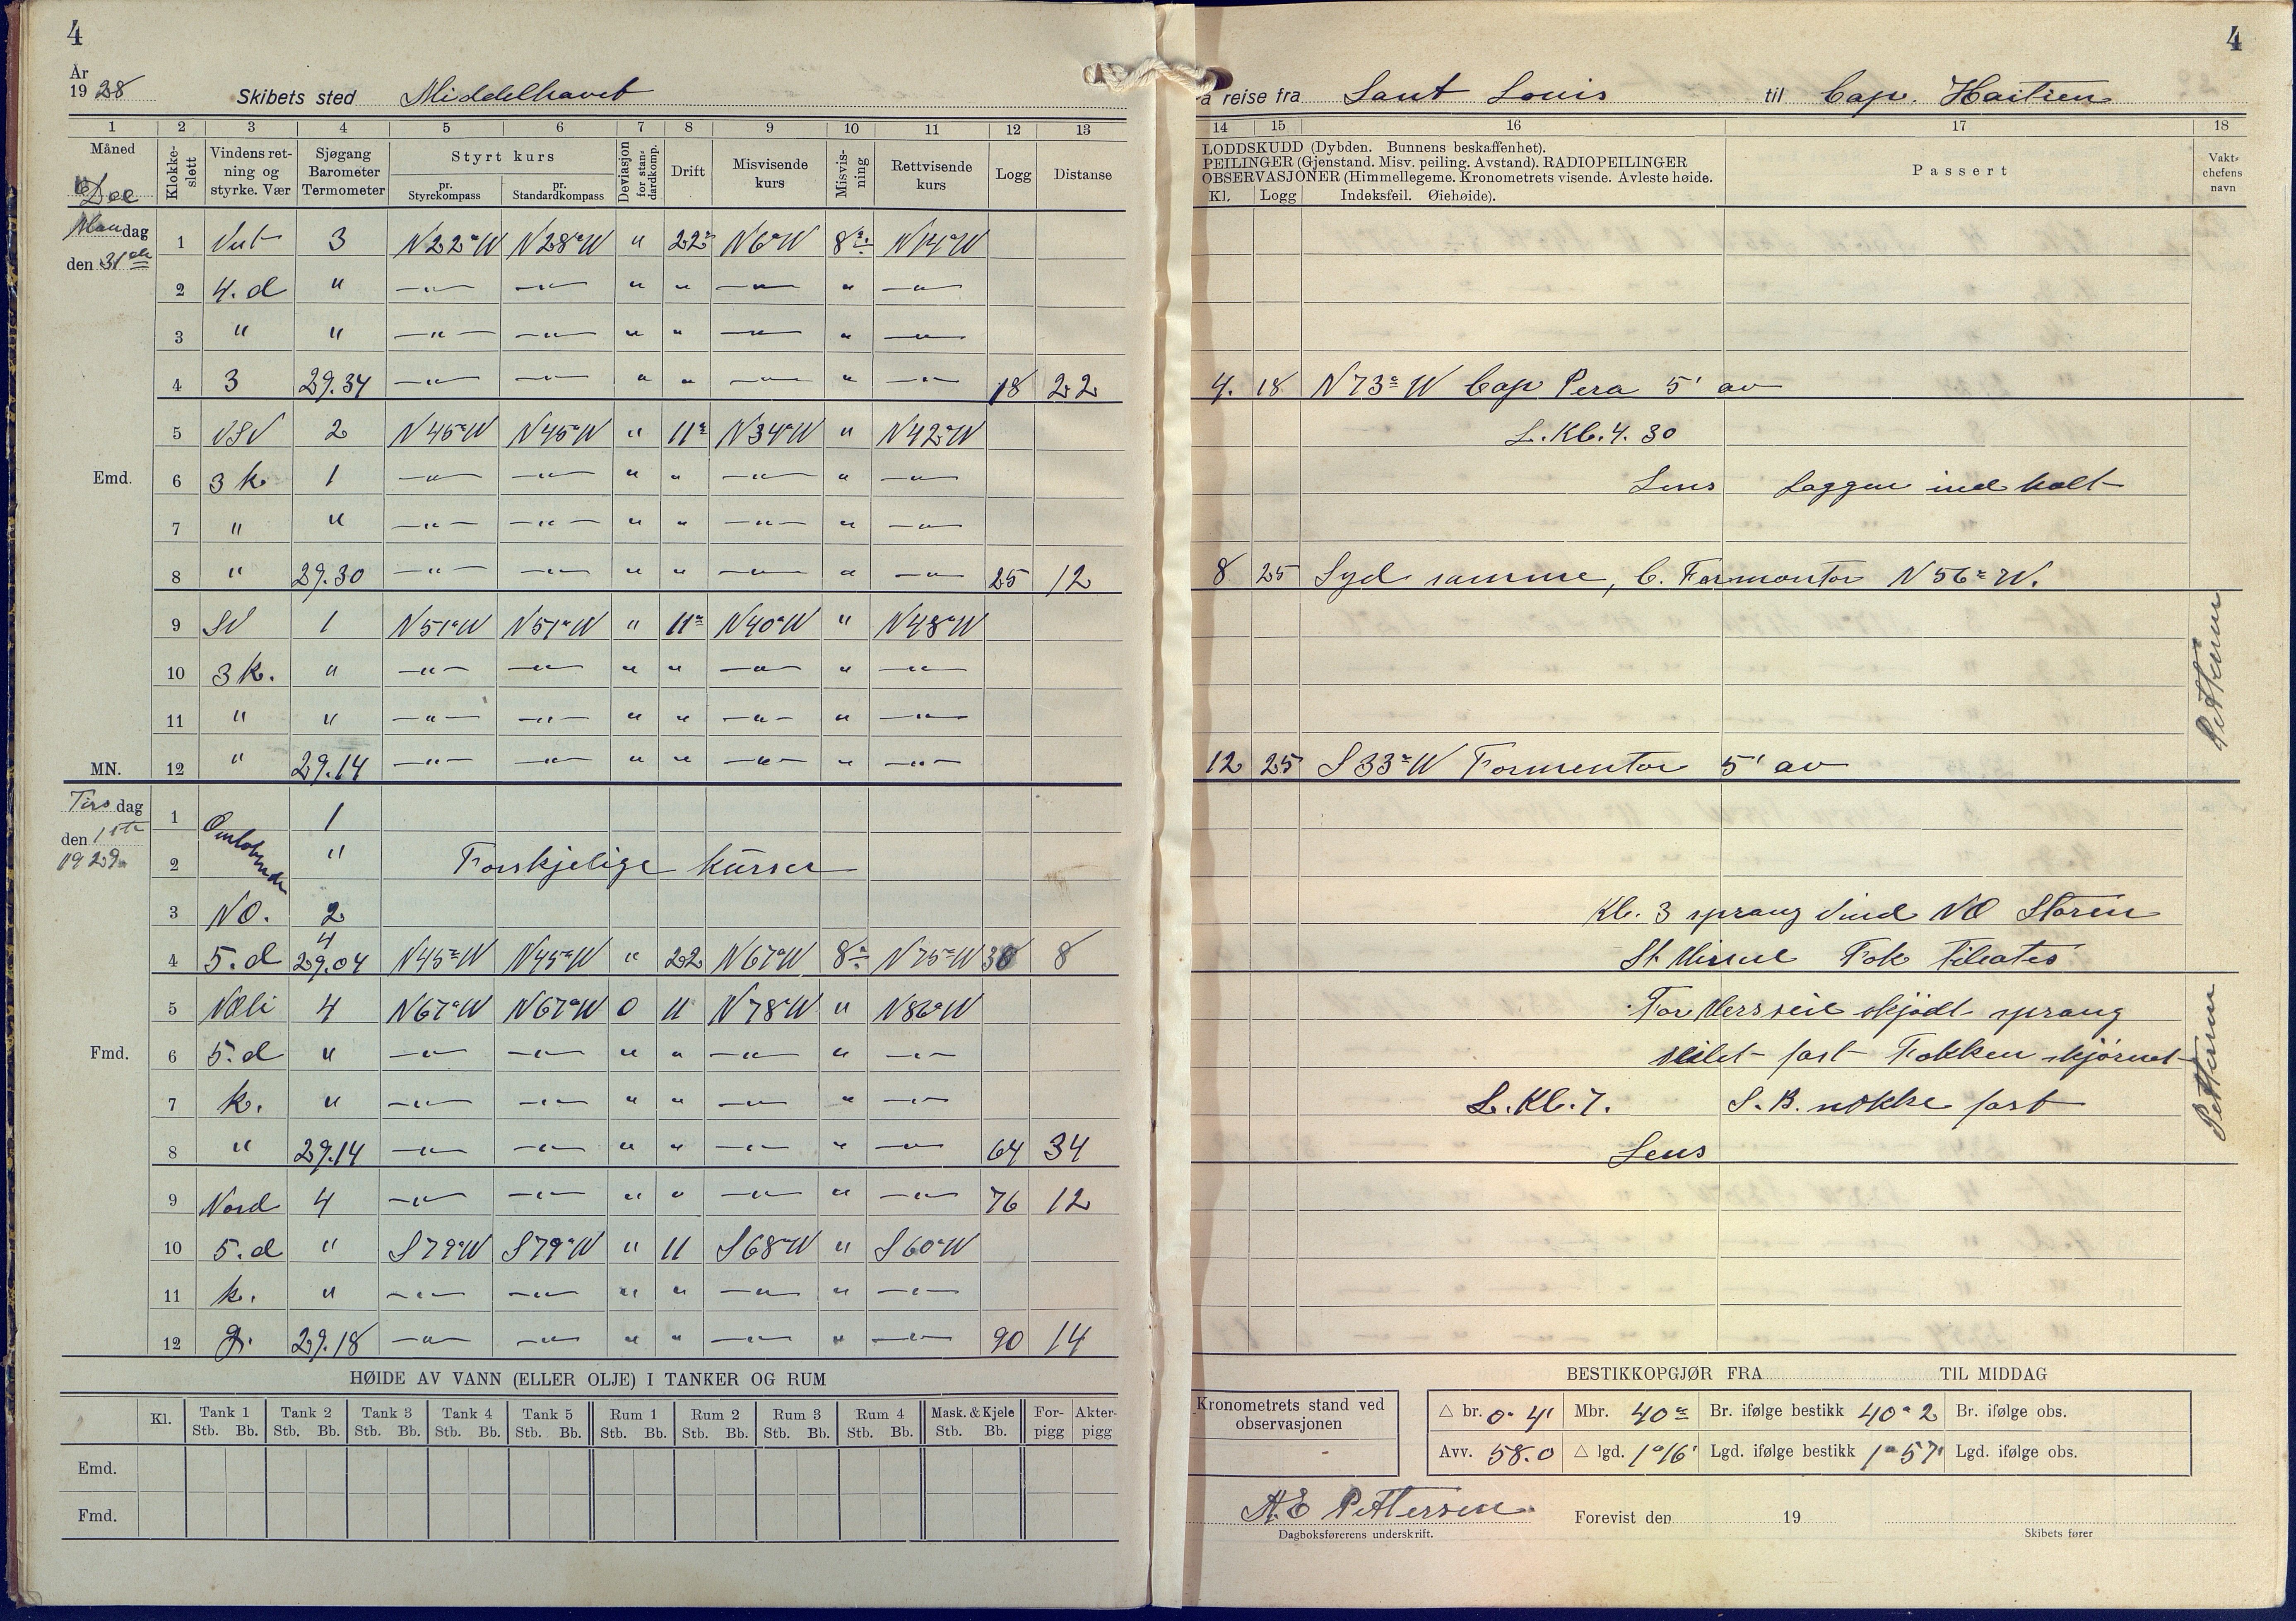 4
År
1928 Skibets sted Middelhavet
1 2 3 4 5 6 7 8 9 10 11 12 13
Måned Klokkeslett Vindens retning og styrke. Vær Sjøgang Barometer Termometer Styrt kurs pr. Styrekompass pr. Standardkompass Deviasjon for standardkomp. Drift Misvisende kurs Misvisning Rettvisende kurs Logg Distanse
Dec
Mandag den 31
1 3 N22°W N28°W " 22° N6°W 8° N14°W
2 4. d " —"— —"— " " —"— " —"—
3 " " —"— —"— " " —"— " —"—
4 3 29.34 —"— —"— " " —"— " —"— 18 22
5 VSV 2 N45°W N45°W " 11° N34°W " N42°W
Emd. 6 3 k. 1 —"— —"— " " —"— " —"—
7 " " —"— —"— " " —"— " —"—
8 " 29.30 —"— —"— " " —"— " —"— 25 12
9 SV 1 N51°W N51°W " 11° N40°W " N48°W
10 3 k. " —"— —"— " " —"— " —"—
11 " " —"— —"— " " —"— " —"—
MN. 12 " 29.14 —"— —"— " " —"— " —"—
Tirsdag den 1ste 1929
1 Omløbende 1
2 " Forskjelige Kurser
3 NO. 2
4 5. d 4 29.04 N45°W N45°W " 22 N67°W 8° N75°W 30 8
5 4 N67°W N67°W 0 11 N78°W " N86°W
Fmd. 6 5. d " —"— —"— " " —"— " —"—
7 k. " —"— —"— " " —"— " —"—
8 " 29.14 —"— —"— " " —"— " —"— 64 34
9 Nord 4 —"— —"— " " —"— " —"— 76 12
10 5. d " S79°W S79°W " 11 S68°W " S60°W
11 k. " —"— —"— " " —"— " —"—
12 g. 29.18 —"— —"— " " —"— " —"— 90 14
HØIDE AV VANN (ELLER OLJE) I TANKER OG RUM
Kl. Tank 1 Tank 2 Tank 3 Tank 4 Tank 5 Rum 1 Rum 2 Rum 3 Rum 4 Mask. & Kjele Forpigg Akterpigg
Stb. Bb. Stb. Bb. Stb. Bb. Stb. Bb. Stb. Bb. Stb. Bb. Stb. Bb. Stb. Bb. Stb. Bb. Stb. Bb.
Emd.
Fmd.
4
å reise fra Sant Louis til Cap. Haitien
14 15 16 17 18
LODDSKUDD (Dybden. Bunnens beskaffenhet).
PEILINGER (Gjenstand. Misv. peiling. Avstand). RADIOPEILINGER
OBSERVASJONER (Himmellegeme. Kronometrets visende. Avleste høide.
Kl. Logg Indeksfeil. Øiehøide).
Passert
Vaktchefens navn
4. 18 N73°W Cap Pera 5' av
L. Kl. 4. 30
Lens Loggen ind halt
8 25 Syd samme, C. Formontor N56°W.
12 25 S33°W Formentor 5' av
Pettersen
Kl. 3 sprang Vind NO Storm
Fok
For Mersseil skjødt sprang
seilet fast Fokken
L. Kl. 7. S. B. nokke fast
Lens
Pettersen
BESTIKKOPGJØR FRA TIL MIDDAG
Kronometrets stand ved observasjonen
△ br. 0° 4' Mbr. 40° Br. ifølge bestikk 40° 2 Br. ifølge obs.
Avv. 58.0 △ lgd. 1°16' Lgd. ifølge bestikk 1°57' Lgd. ifølge obs.
A. E Pettersen Forevist den 19
Dagboksførerens underskrift. Skibets fører